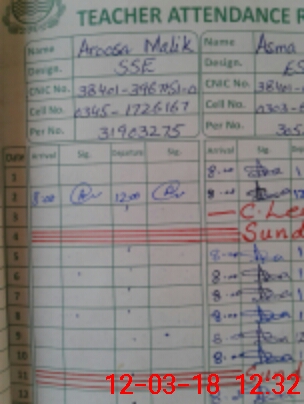 TEACHER ATTENDANCE R
Name Aroosa Malik Name Asma
Design. SSE Design. ES
CNIC No. CNIC No. 38401-
Cell No. 0345-1726167 Cell No. 0303-
Per No. 31903275 Per No. 305
Date Arrival Sig. Departure Sig. Arrival Sig.
1 8:00
2 8:00 12:00 8:00
3 C.Le
4 Sund
5 8:00
6 8:00
7 8:00
8 8:00
9 8:00
10 8:00
11 Sund
12 8:00
12-03-18 12:32